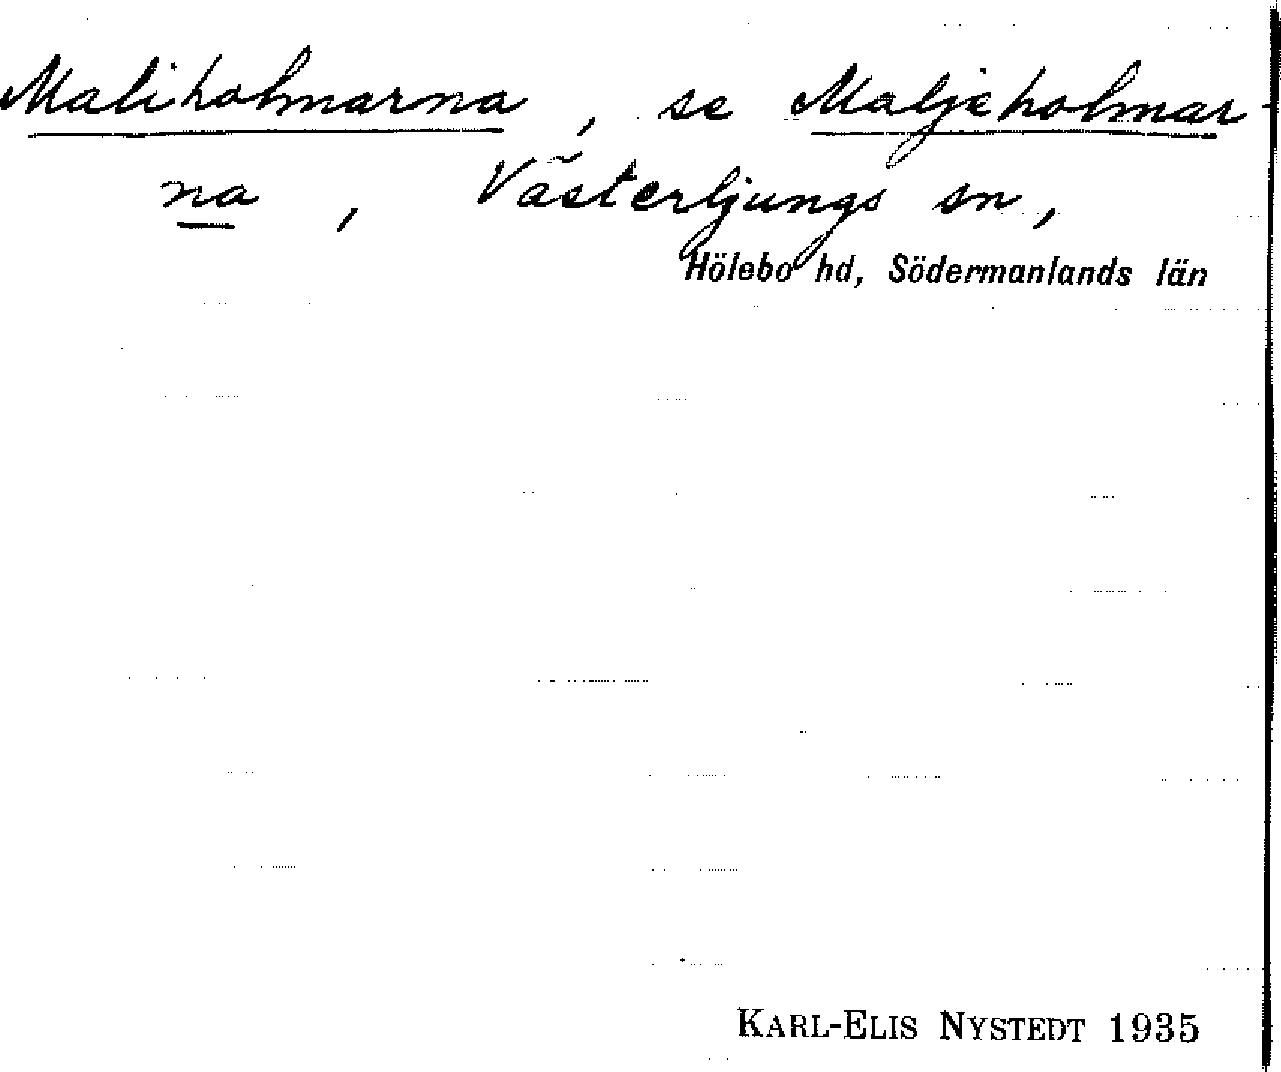 Maliholmarna, se Maljeholmar-
na, Västerljungs sn,
Hölebo hd, Södermanlands län
KARL-ELIS NYSTEDT 1935